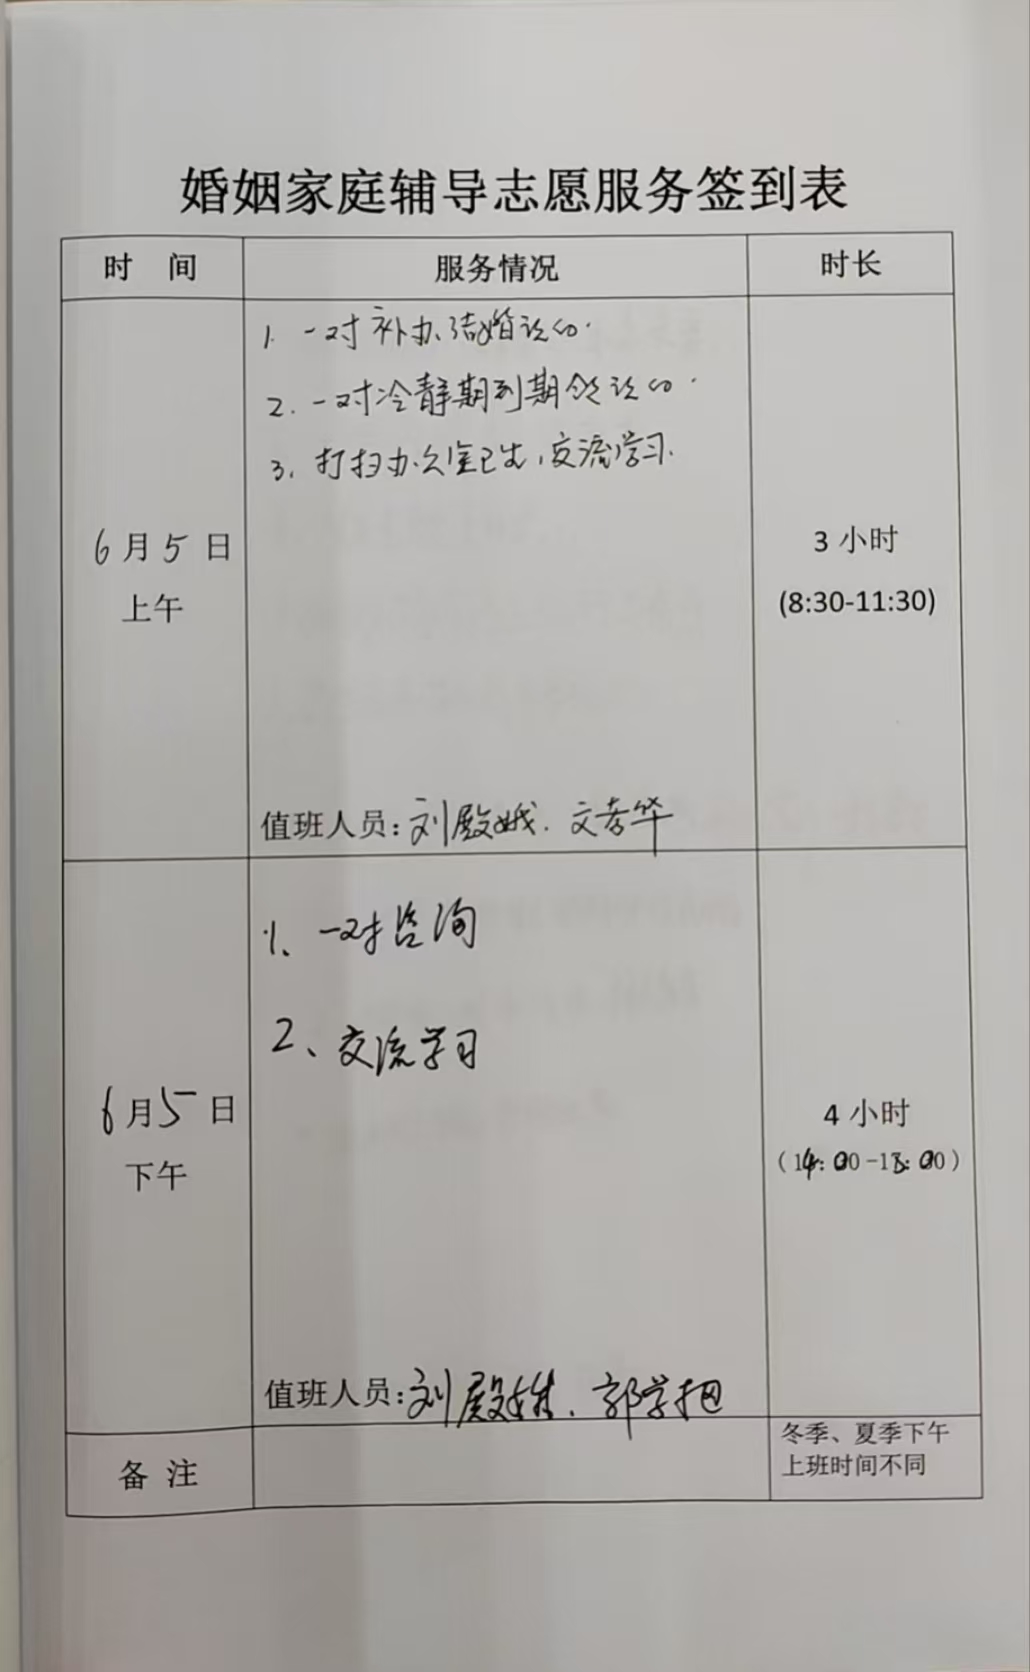 婚姻家庭辅导志愿服务签到表
时 间 服务情况 时长
1. 一对补办结婚
2. 一对冷静期到期领
3. 打扫办公室卫生,交流学习.
6月5日
上午
3 小时
(8:30-11:30)
值班人员:刘殿娥. 文孝华
1、一对咨询
2、交流学习
6月5日
下午
4 小时
(14:00-18:00)
值班人员:刘殿娥、郭学
备 注
冬季、夏季下午
上班时间不同